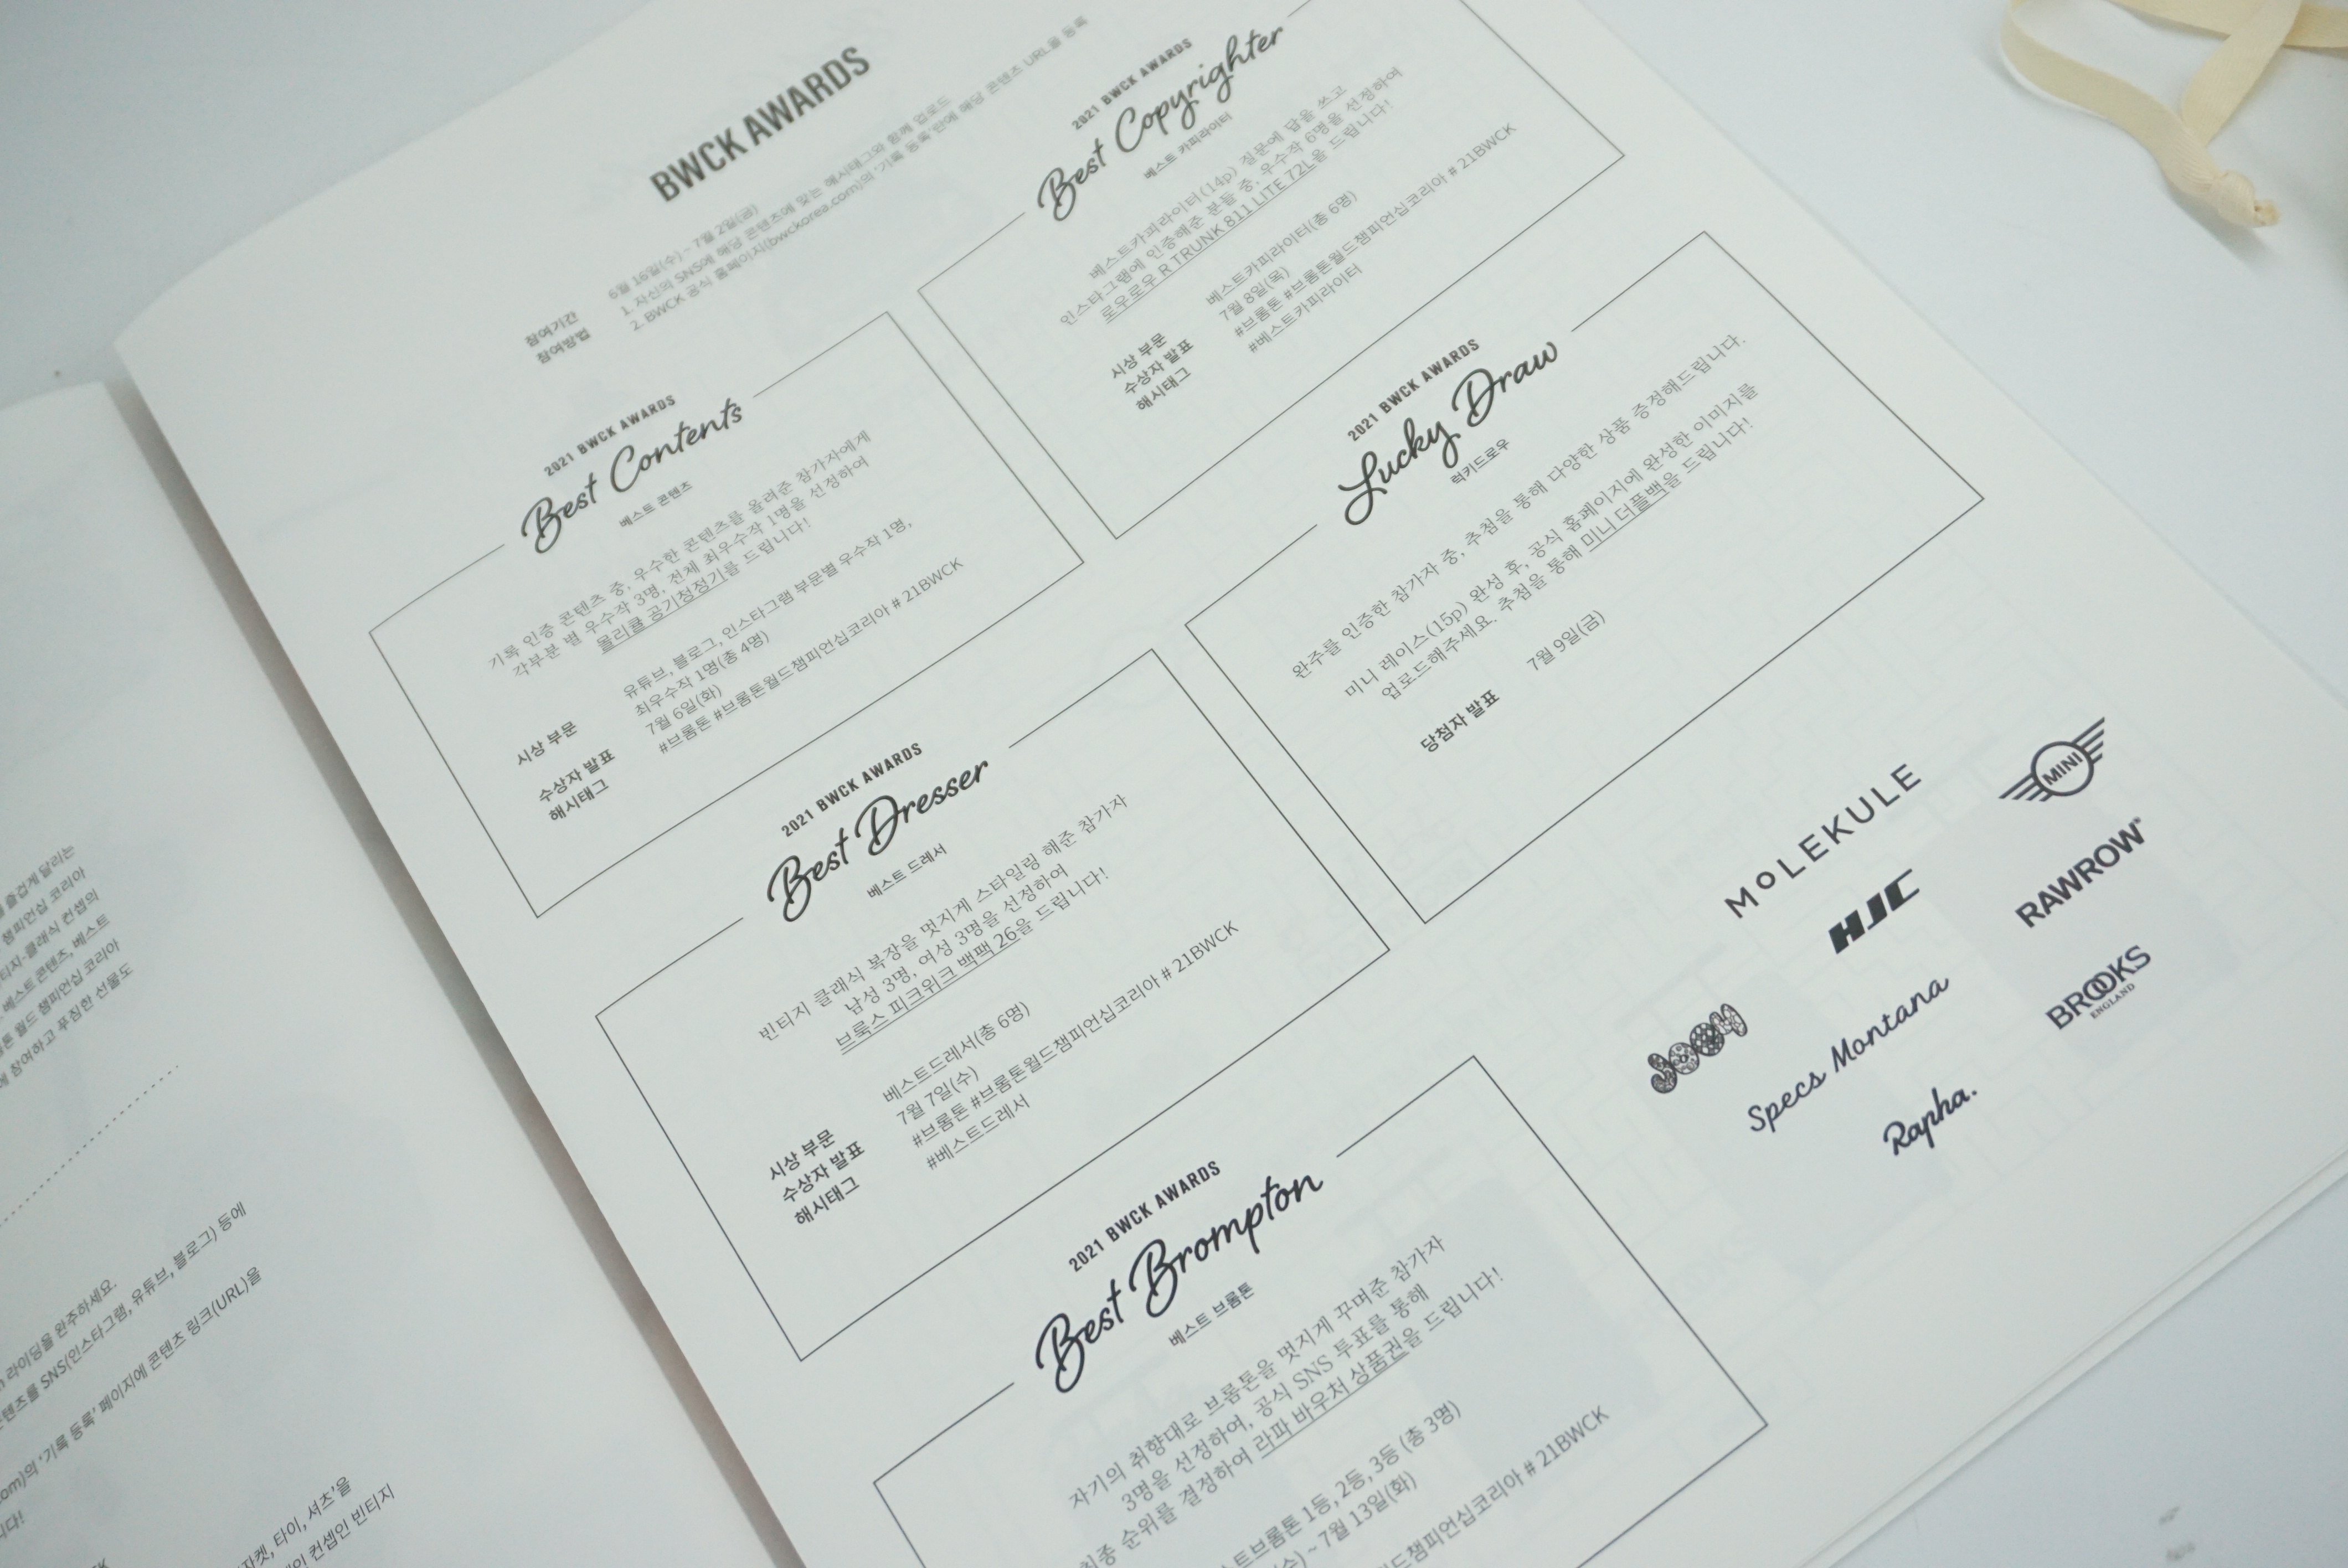 BWCK AWARDS
참여기간 6월 16일(수) ~ 7월 2일(금)
참여방법 1. 자신의 SNS에 해당 콘텐츠에 맞는 해시태그와 함께 업로드
2. BWCK 공식 홈페이지(bwckorea.com)의 '기록 등록'란에 해당 콘텐츠 URL을 등록
2021 BWCK AWARDS
Best Contents
베스트 콘텐츠
기록 인증 콘텐츠 중, 우수한 콘텐츠를 올려준 참가자에게
각부분 별 우수작 3명, 전체 최우수작 1명을 선정하여
몰리큘 공기청정기를 드립니다!
시상 부문 유튜브, 블로그, 인스타그램 부문별 우수작 1명,
최우수작 1명(총 4명)
수상자 발표 7월 6일(화)
해시태그 #브롬톤 #브롬톤월드챔피언십코리아 # 21BWCK
2021 BWCK AWARDS
Best Copyrighter
베스트 카피라이터
베스트카피라이터(14p) 질문에 답을 쓰고
인스타그램에 인증해준 분들 중, 우수작 6명을 선정하여
로우로우 R TRUNK 811 LITE 72L을 드립니다!
시상 부문 베스트카피라이터(총 6명)
수상자 발표 7월 8일(목)
해시태그 #브롬톤 #브롬톤월드챔피언십코리아 # 21BWCK
#베스트카피라이터
2021 BWCK AWARDS
Best Dresser
베스트 드레서
빈티지 클래식 복장을 멋지게 스타일링 해준 참가자
남성 3명, 여성 3명을 선정하여
브룩스 피크위크 백팩 26을 드립니다!
시상 부문 베스트드레서(총 6명)
수상자 발표 7월 7일(수)
해시태그 #브롬톤 #브롬톤월드챔피언십코리아 # 21BWCK
#베스트드레서
2021 BWCK AWARDS
Lucky Draw
럭키드로우
완주를 인증한 참가자 중, 추첨을 통해 다양한 상품 증정해드립니다.
미니 레이스(15p) 완성 후, 공식 홈페이지에 완성한 이미지를
업로드해주세요. 추첨을 통해 미니 더플백을 드립니다!
당첨자 발표 7월 9일(금)
2021 BWCK AWARDS
Best Brompton
베스트 브롬톤
자기의 취향대로 브롬톤을 멋지게 꾸며준 참가자
3명을 선정하여, 공식 SNS 투표를 통해
최종 순위를 결정하여 라파 바우처 상품권을 드립니다!
트브롬톤 1등, 2등, 3등 (총 3명)
~ 7월 13일(화)
드챔피언십코리아 # 21BWCK
MOLEKULE
MINI
HJC
RAWROW
JOOM
Specs Montana
BROOKS
ENGLAND
Rapha.
즐겁게 달리는
챔피언십 코리아
티지-클래식 컨셉의
베스트 콘텐츠, 베스트
톤 월드 챔피언십 코리아
에 참여하고 푸짐한 선물도
라이딩을 완주하세요.
텐츠를 SNS(인스타그램, 유튜브, 블로그) 등에
om)의 '기록 등록' 페이지에 콘텐츠 링크(URL)을
니다!
자켓, 타이, 셔츠'을
인 컨셉인 빈티지